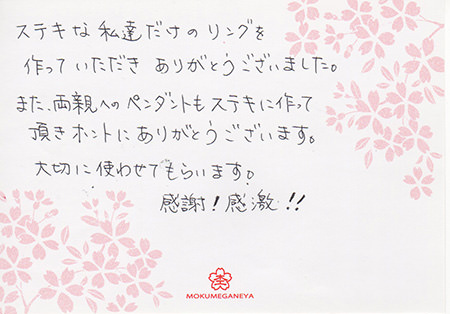 ステキな私達だけのリングを
作っていただき ありがとうございました。
また、両親へのペンダントもステキに作って
頂きホントにありがとうございます。
大切に使わせてもらいます。
感謝!感激!!
MOKUMEGANEYA